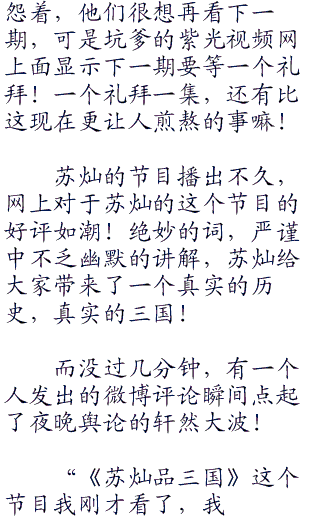 怨着，他们很想再看下一
期，可是坑爹的紫光视频网
上面显示下一期要等一个礼
拜！一个礼拜一集，还有比
这现在更让人煎熬的事嘛！
苏灿的节目播出不久，
网上对于苏灿的这个节目的
好评如潮！绝妙的词，严谨
中不乏幽默的讲解，苏灿给
大家带来了一个真实的历
史，真实的三国！
而没过几分钟，有一个
人发出的微博评论瞬间点起
了夜晚舆论的轩然大波！
“《苏灿品三国》这个
节目我刚才看了，我